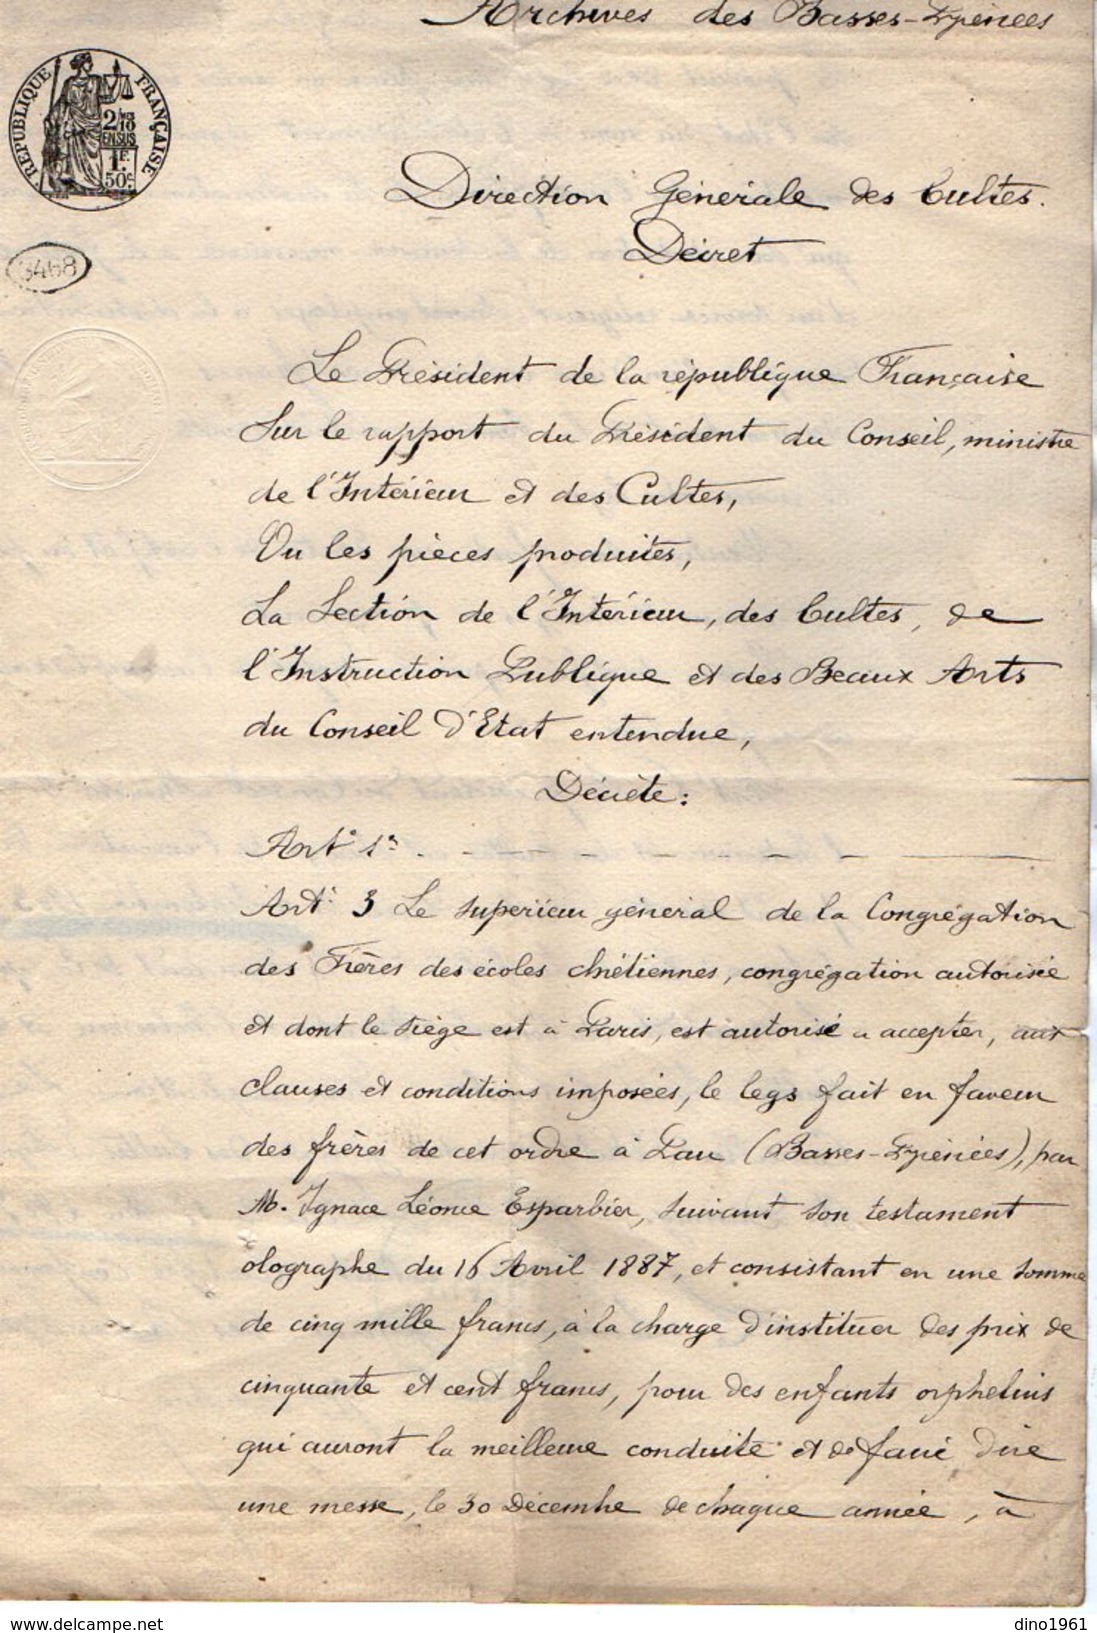 Archives des Basses-Pyrénées
RÉPUBLIQUE FRANÇAISE
2/10
EN SUS
1F.
50c.
3468
Direction Générale des Cultes.
Décret
Le Président de la république Française
Sur le rapport du Président du Conseil, ministre
de l'Intérieur et des Cultes,
Vu les pièces produites,
La Section de l'Intérieur, des Cultes, de
l'Instruction Publique et des Beaux Arts
du Conseil d'Etat entendue,
Décrète:
Art. 1er. - - - - - -
Art. 3 Le Supérieur général de la Congrégation
des Frères des écoles chrétiennes, congrégation autorisée
et dont le siège est à Paris, est autorisé à accepter, aux
clauses et conditions imposées, le legs fait en faveur
des frères de cet ordre à Pau (Basses-Pyrénées), par
M. Ignace Léonce Esparbier, suivant son testament
olographe du 16 Avril 1887, et consistant en une somme
de cinq mille francs, à la charge d'instituer des prix de
cinquante et cent francs, pour des enfants orphelins
qui auront la meilleure conduite et de faire dire
une messe, le 30 Décembre de chaque année, à
www.delcampe.net
dino1961